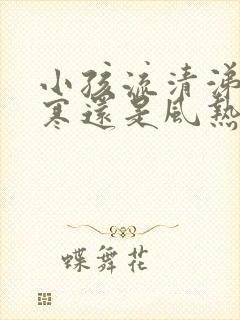 小孩流清涕
寒還是風熱
蝶舞花